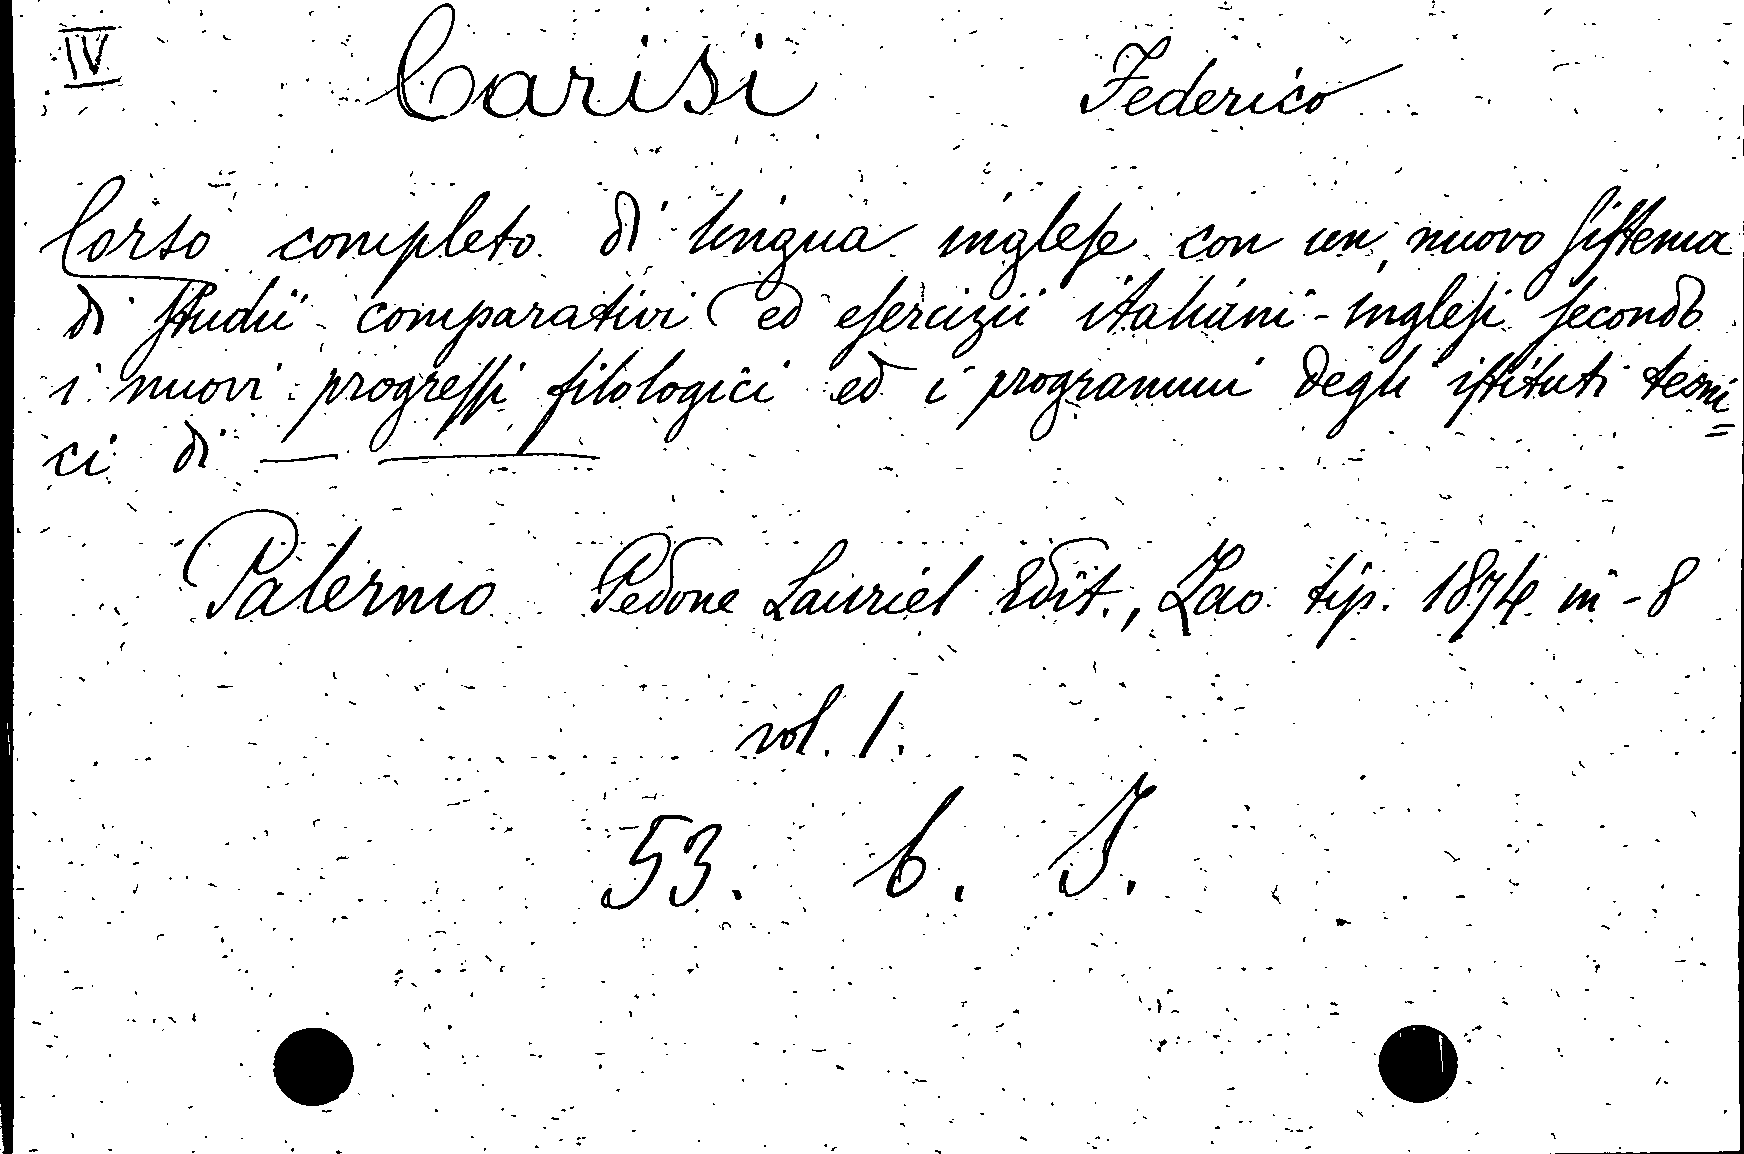 IV Carisi Federico
Corso completo di lingua inglese con un nuovo sistema
di studii comparativi ed esercizii italiani-inglesi secondo
i nuovi progressi filologici ed i programmi degli istituti tecni=
ci di — —
Palermo Pedone Lauriel Edit., Lao tip. 1874 in-8
vol. 1.
53. b.